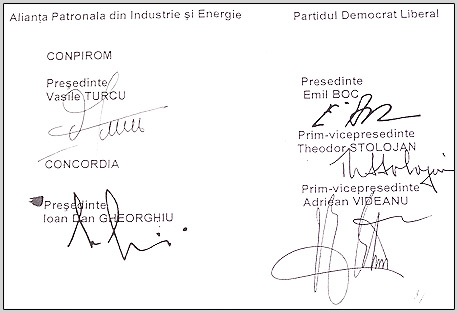 Alianța Patronala din Industrie și Energie
CONPIROM
Președinte
Vasile TURCU
CONCORDIA
Președinte
Ioan Dan GHEORGHIU
Partidul Democrat Liberal
Presedinte
Emil BOC
E Boc
Prim-vicepresedinte
Theodor STOLOJAN
Th Stolojan
Prim-vicepresedinte
Adriean VIDEANU